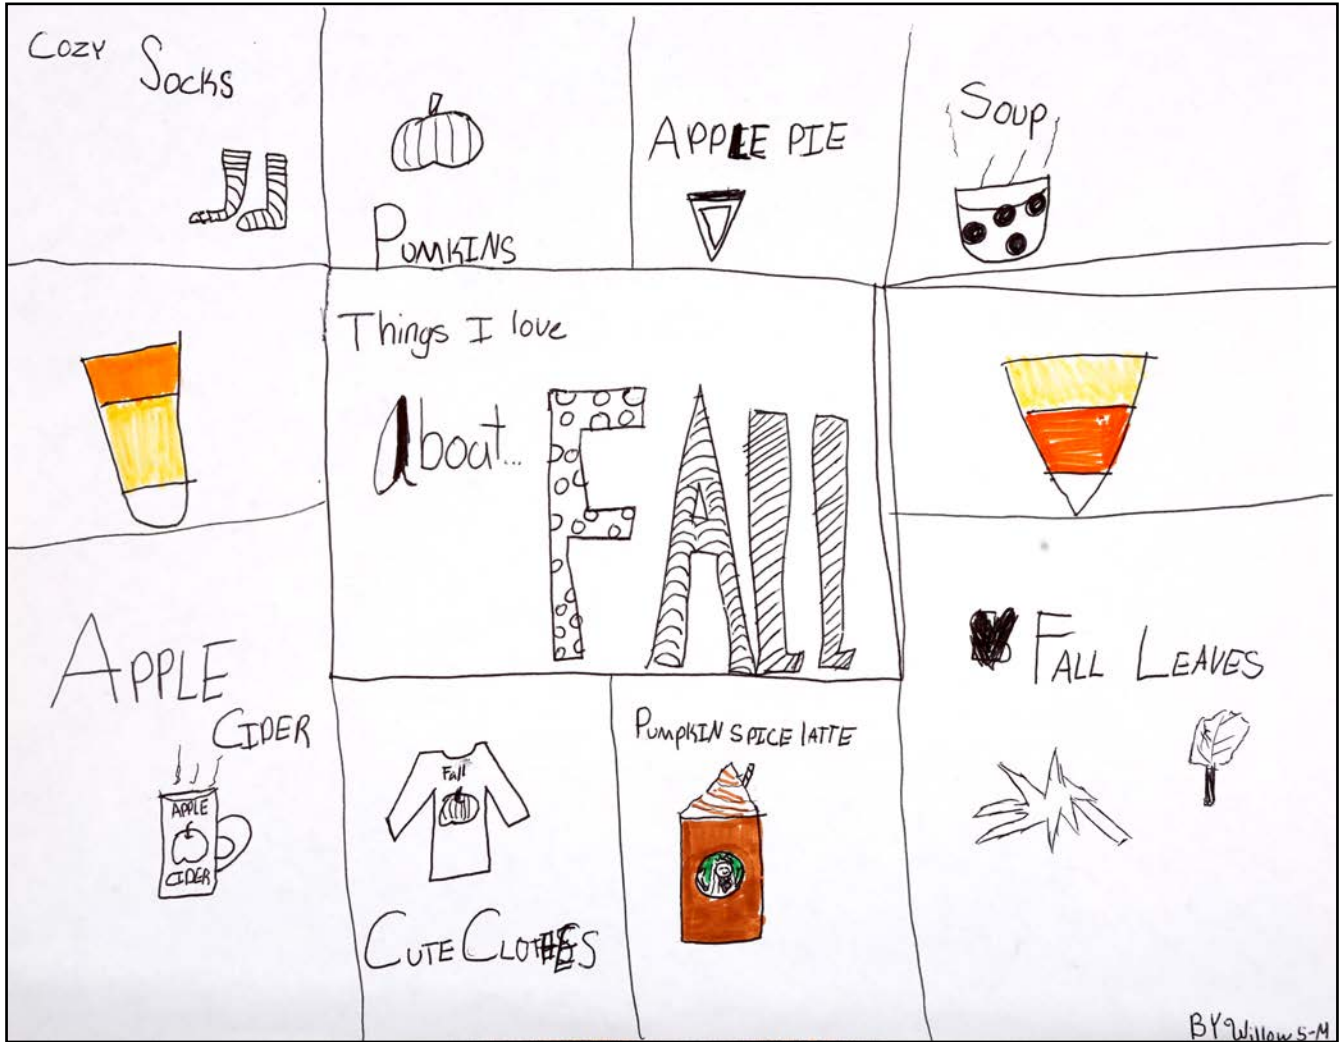 Cozy
Socks
PUMKINS
APPLE PIE
Soup
Things I love
about...
FALL
APPLE
CIDER
APPLE
CIDER
Fall
CUTE CLOTHES
PUMPKIN SPICE LATTE
FALL LEAVES
BY Willow S-M